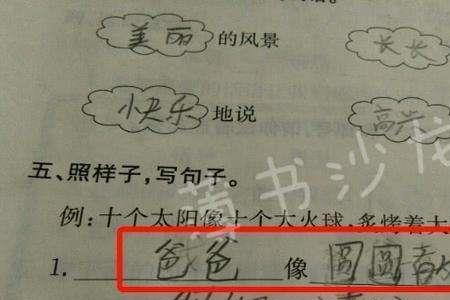 美丽的风景 长长
快乐地说 高兴
五、照样子,写句子。
例:十个太阳像十个大火球,炙烤着大
1. 爸爸像圆圆
薄书沙龙